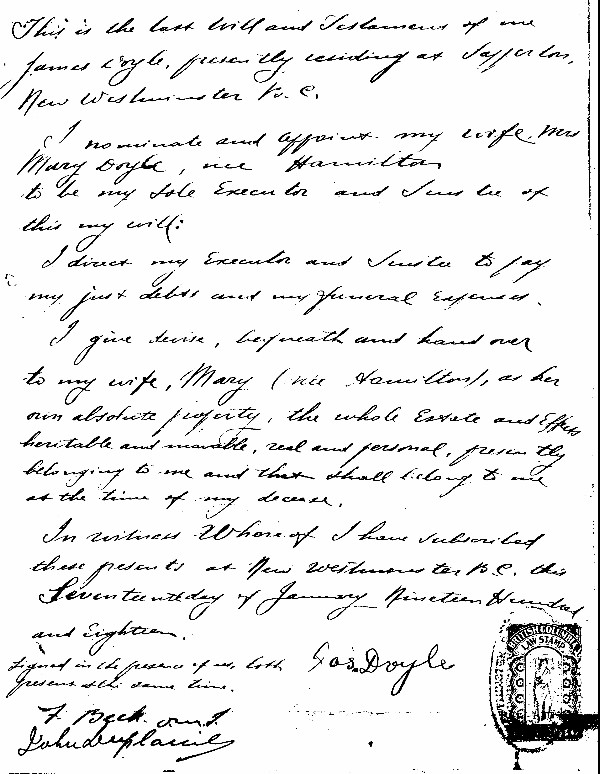 This is the last Will and Testament of me
James Doyle, presently residing at Sapperton,
New Westminster B.C.
I nominate and appoint my wife Mrs
Mary Doyle, nee Hamilton
to be my Sole Executor and Trustee of
this my will:
I direct my Executor and Trustee to pay
my just debts and my funeral Expenses.
I give devise, bequeath and hand over
to my wife, Mary (nee Hamilton), as her
own absolute property, the whole Estate and Effects
heritable and movable, real and personal, presently
belonging to me and that shall belong to me
at the time of my decease.
In witness Whereof I have subscribed
these presents at New Westminster B.C. this
Seventeenth day of January Nineteen Hundred
and Eighteen.
Signed in the presence of us, both
present at the same time.
Jas. Doyle
F. Beck
John
LAW STAMP